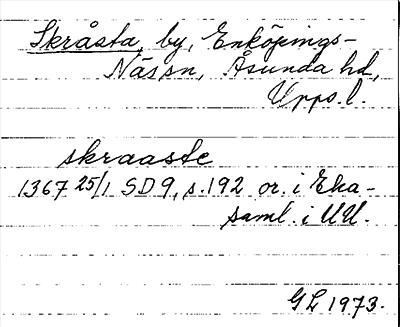 Skråsta, by, Enköpings-
Näs sn, Åsunda hd,
Upps. l.
skraaste
1367 25/1 SD 9, s. 192 or. i Eka-
saml. i UU.
GL 1973.